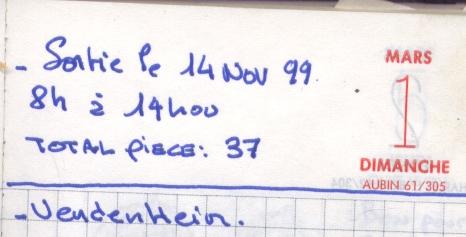 - Sortie le 14 NOV 99.
8h à 14h00
TOTAL PIECE: 37
MARS
1
DIMANCHE
AUBIN 61/305
- Vendenheim.